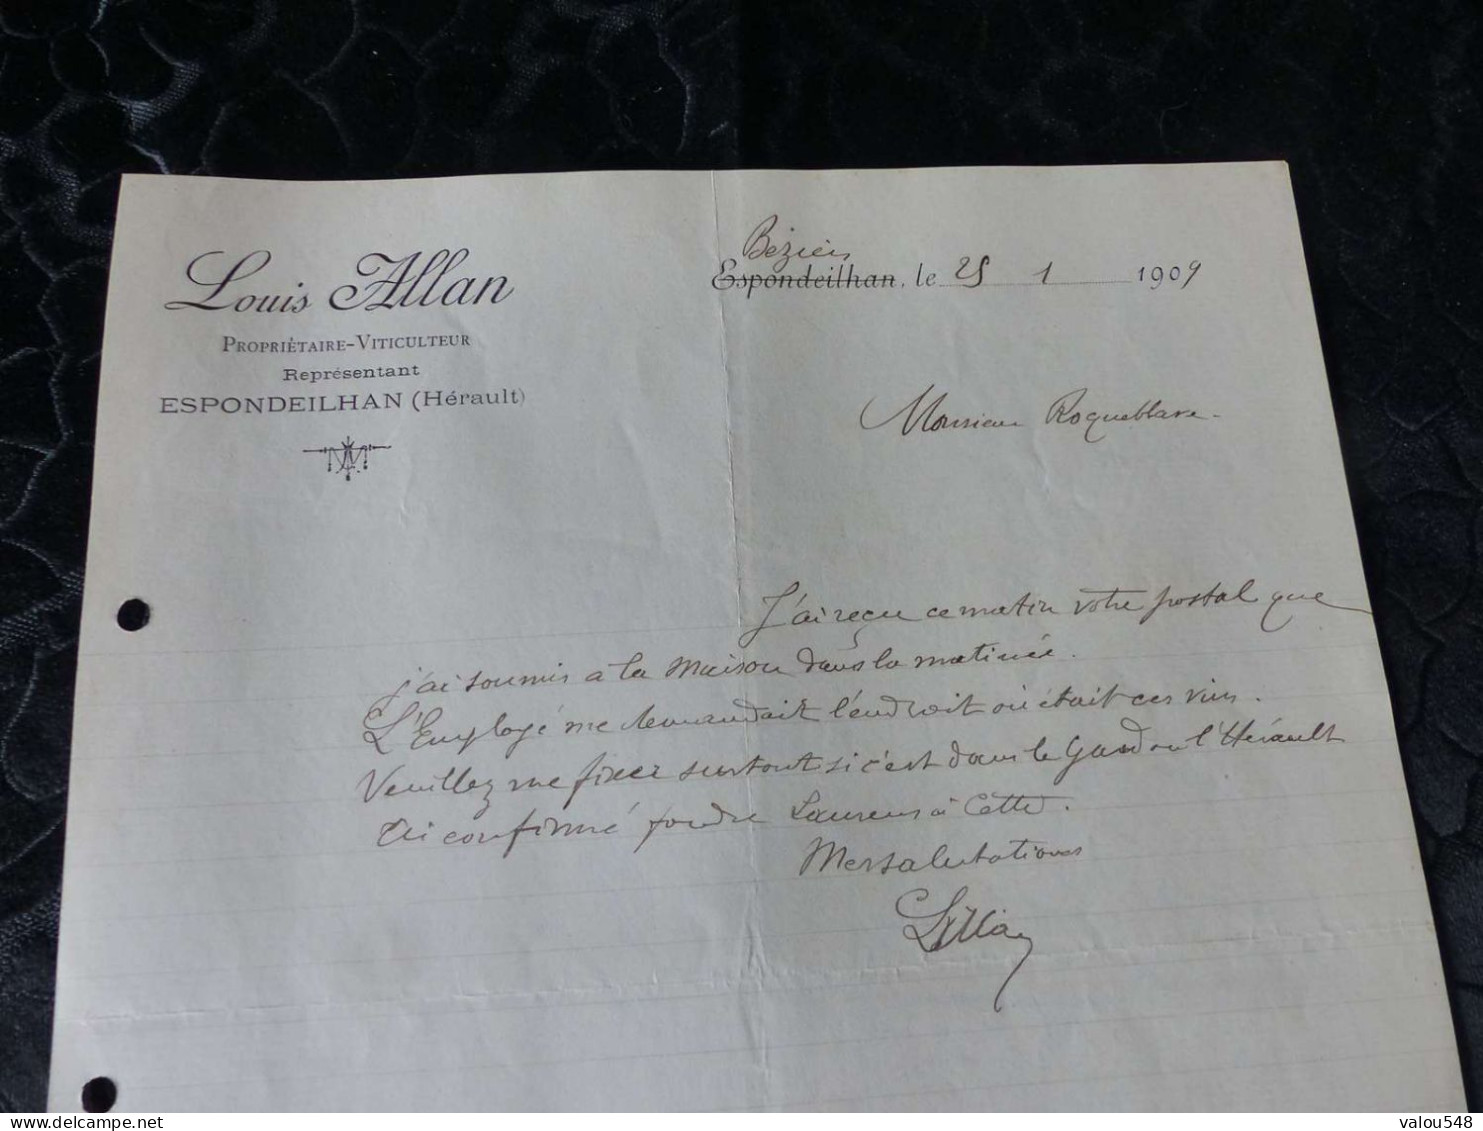 Louis Allan
PROPRIÉTAIRE-VITICULTEUR
Représentant
ESPONDEILHAN (Hérault)
Béziers
Espondeilhan, le 25 1 1909
Monsieur Roqueblave
J'ai reçu ce matin votre postal que
j'ai soumis a la Maison dans la matinée.
L'Employé me demandait l'endroit où était ces vins.
Veuillez me fixer surtout si c'est dans le Gard ou l'Hérault
Ai confirmé foudre Laurens à Cette.
Mes salutations
LAllan
valou548